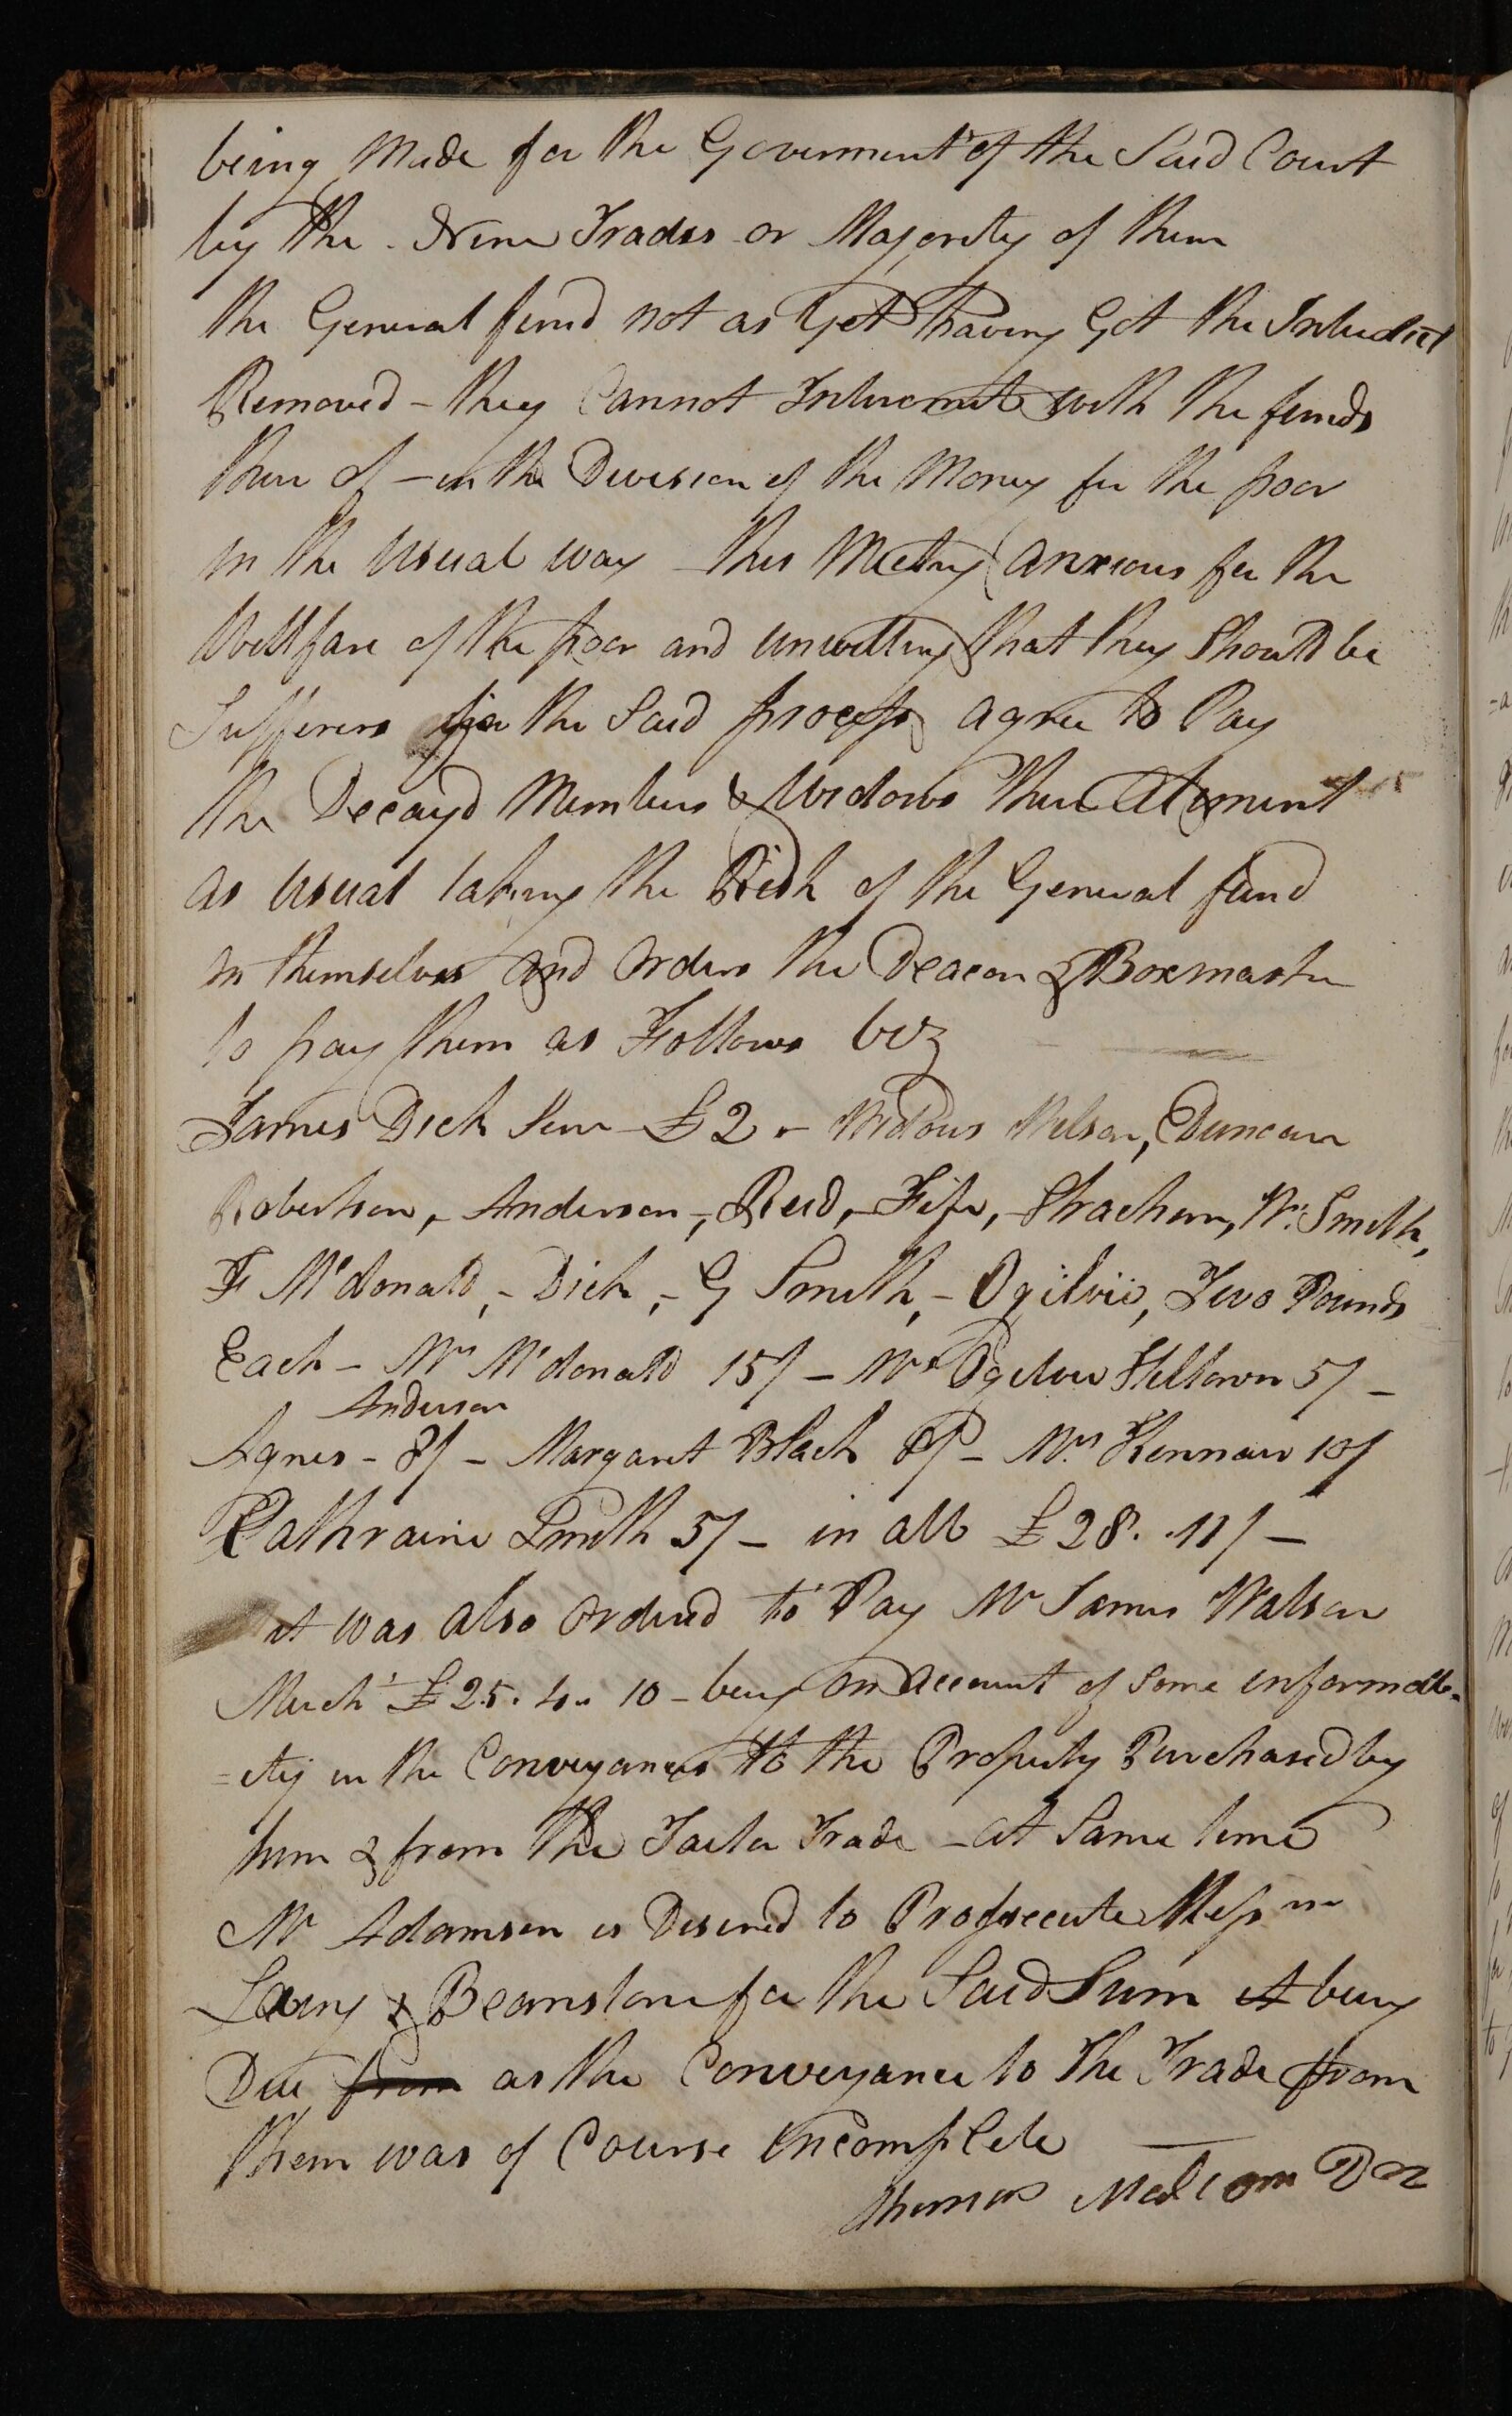 being Made for the Goverment of the Said Court
by the Nine Trades or Majority of them
the General fund not as Yet having Got the Interdict
Removed - they Cannot Intermit with the funds
there of - in the Division of the Money for the poor
in the Usual way this Meeting anxious for the
Wellfare of the poor and unwilling that they Should be
Sufferers for the Said process agree to Pay
the Decay'd Members & Widows their Aliment
as Usual taking the Risk of the General fund
on themselves and Orders the Deacon & Boxmaster
to pay them as Follows viz
James Dick Senr £2 - Widows Wilson, Duncan
Robertson, - Anderson -, Reid, - Fife, - Strachan, Wm Smith,
F McDonald, - Dick, - G Smith, - Ogilvie, Two Pounds
Each - Mrs McDonald 15/ - Mrs Ogilvie Hilltown 5/ -
Anderson
Agnes - 8/ - Margaret Black 8/ - Mrs Kennair 10/
Cathraine Smith 5/ - in all £28. 11/ -
it was also Ordered to Pay Mr James Watson
Mercht £25. 4. 10 - being on account of Some informall-
=ity in the Conveyances to the Property Purchased by
him & from the Taylor Trade - at Same time
Mr Adamson is Desired to Prossecute Messrs
Laing & Beanston for the Said Sum it being
Due from as the Conveyance to The Trade from
them was of Course Incomplete
Thomas Malcom Dn